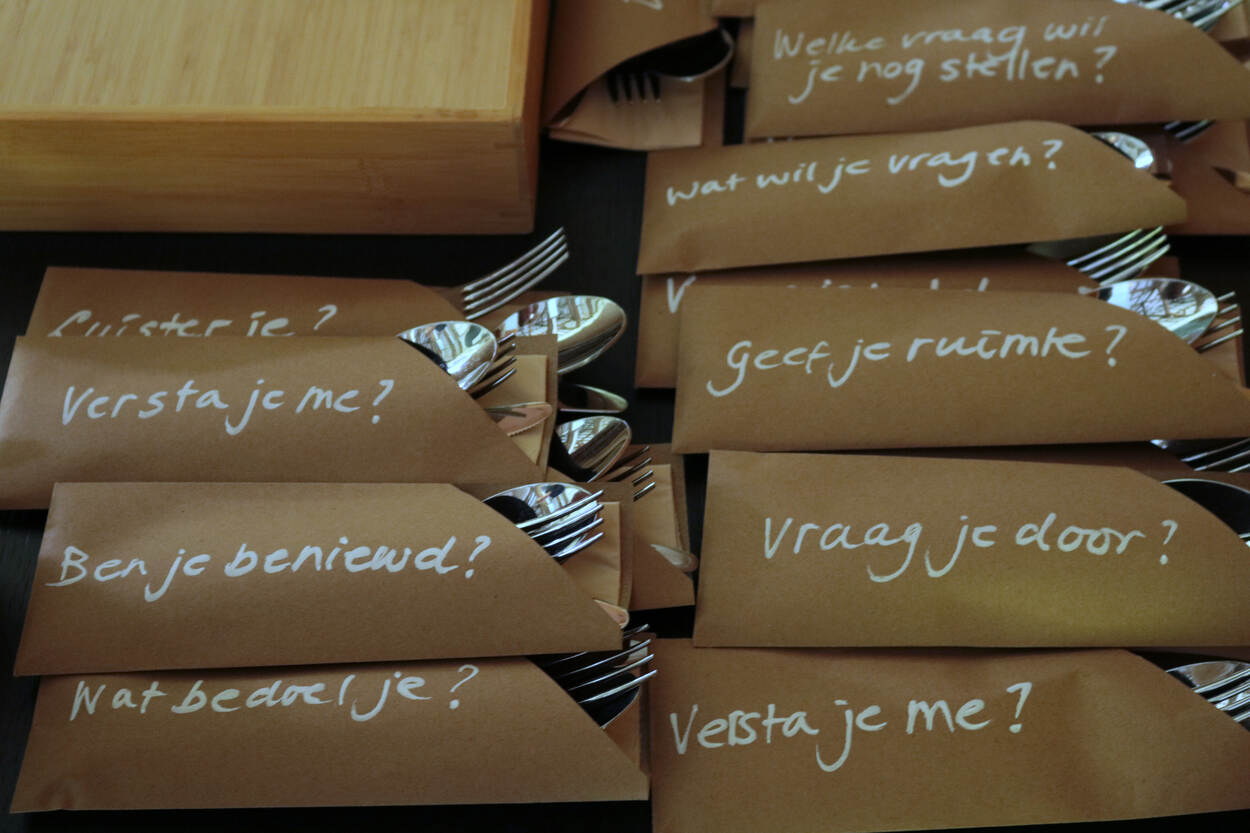 Welke vraag wil
je nog stellen?
wat wil je vragen?
Geef je ruimte?
Vraag je door?
Versta je me?
Luister je?
Versta je me?
Ben je benieuwd?
Wat bedoel je?